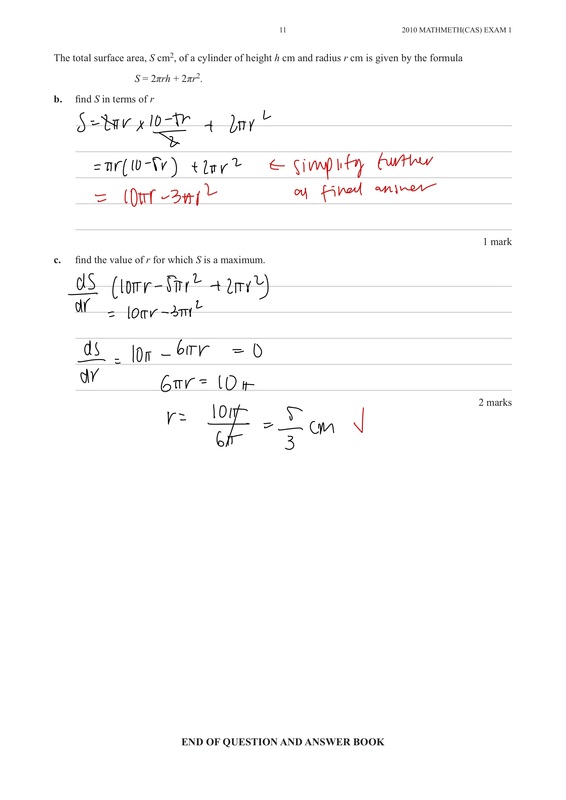 11
2010 MATHMETH(CAS) EXAM 1
The total surface area, S cm², of a cylinder of height h cm and radius r cm is given by the formula
S = 2πrh + 2πr².
b. find S in terms of r
S = 2πr × (10-5r)/2 + 2πr²
= πr(10-5r) + 2πr² ← simplify further
as final answer
= 10πr - 3πr²
1 mark
c. find the value of r for which S is a maximum.
dS/dr (10πr - 5πr² + 2πr²)
= 10πr - 3πr²
ds/dr = 10π - 6πr = 0
6πr = 10π
2 marks
r = 10π/6π = 5/3 cm ✓
END OF QUESTION AND ANSWER BOOK